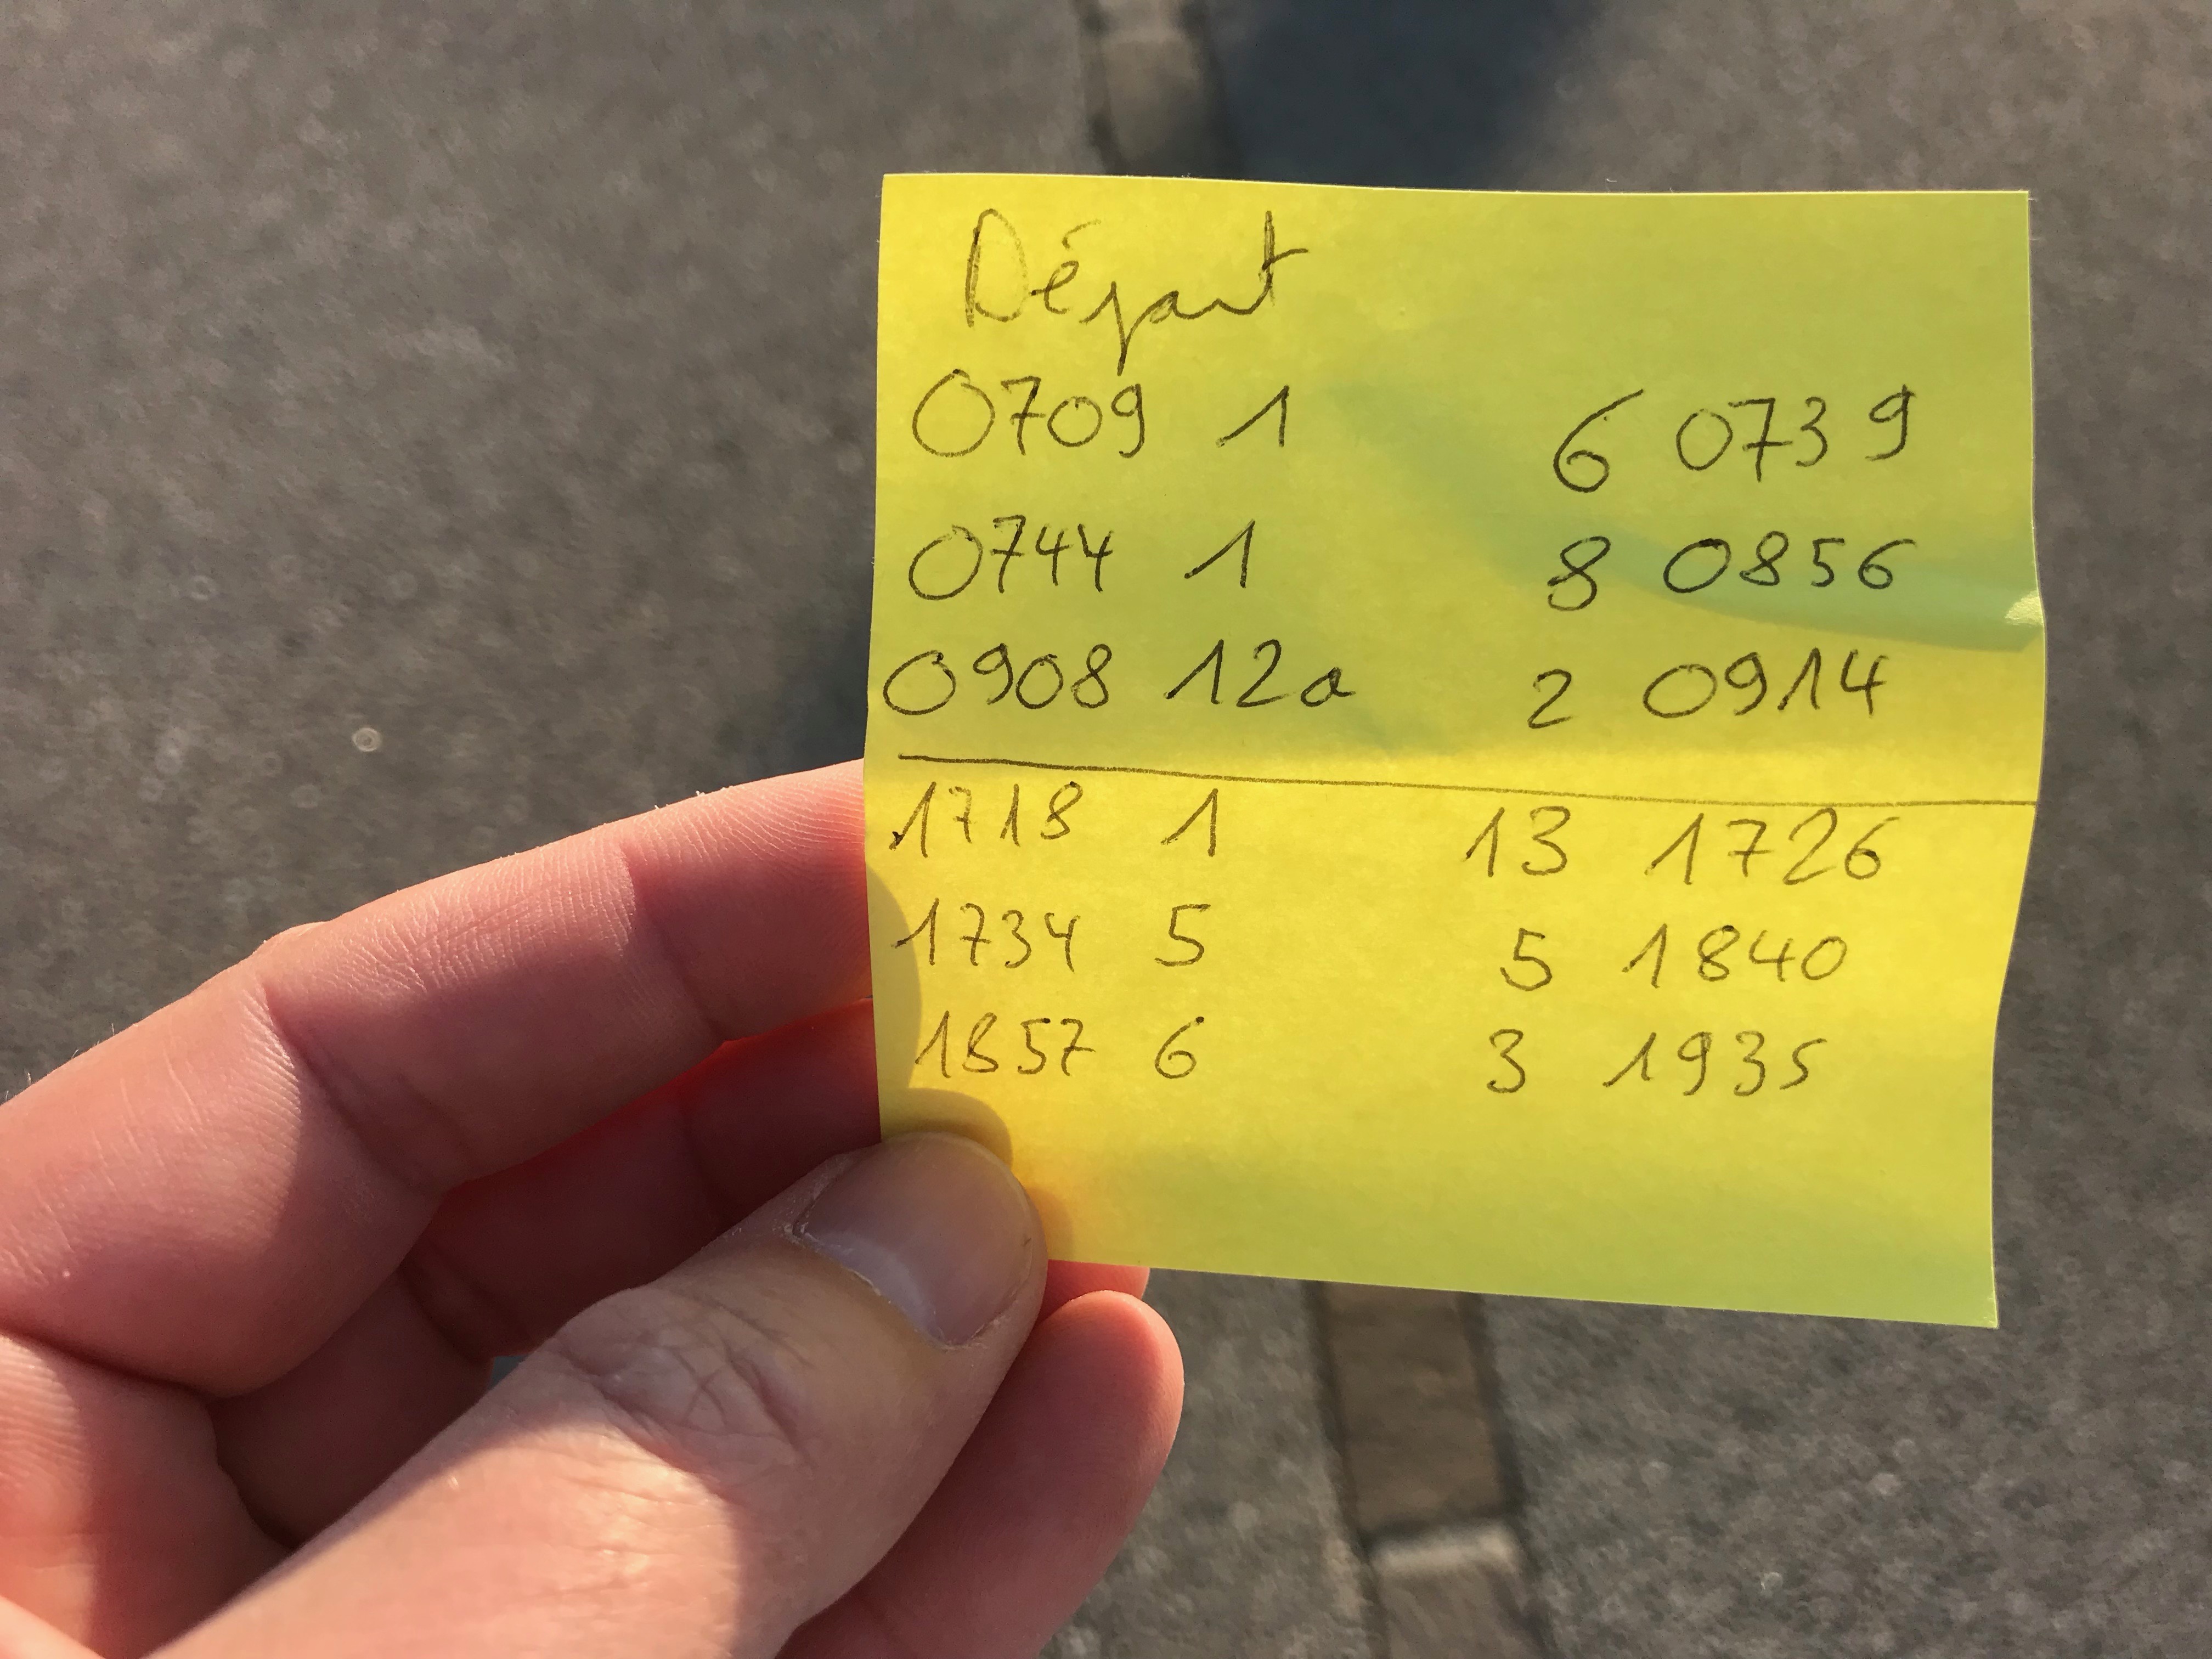 Départ
0709 1 6 0739
0744 1 8 0856
0908 12a 2 0914
1718 1 13 1726
1734 5 5 1840
1857 6 3 1935